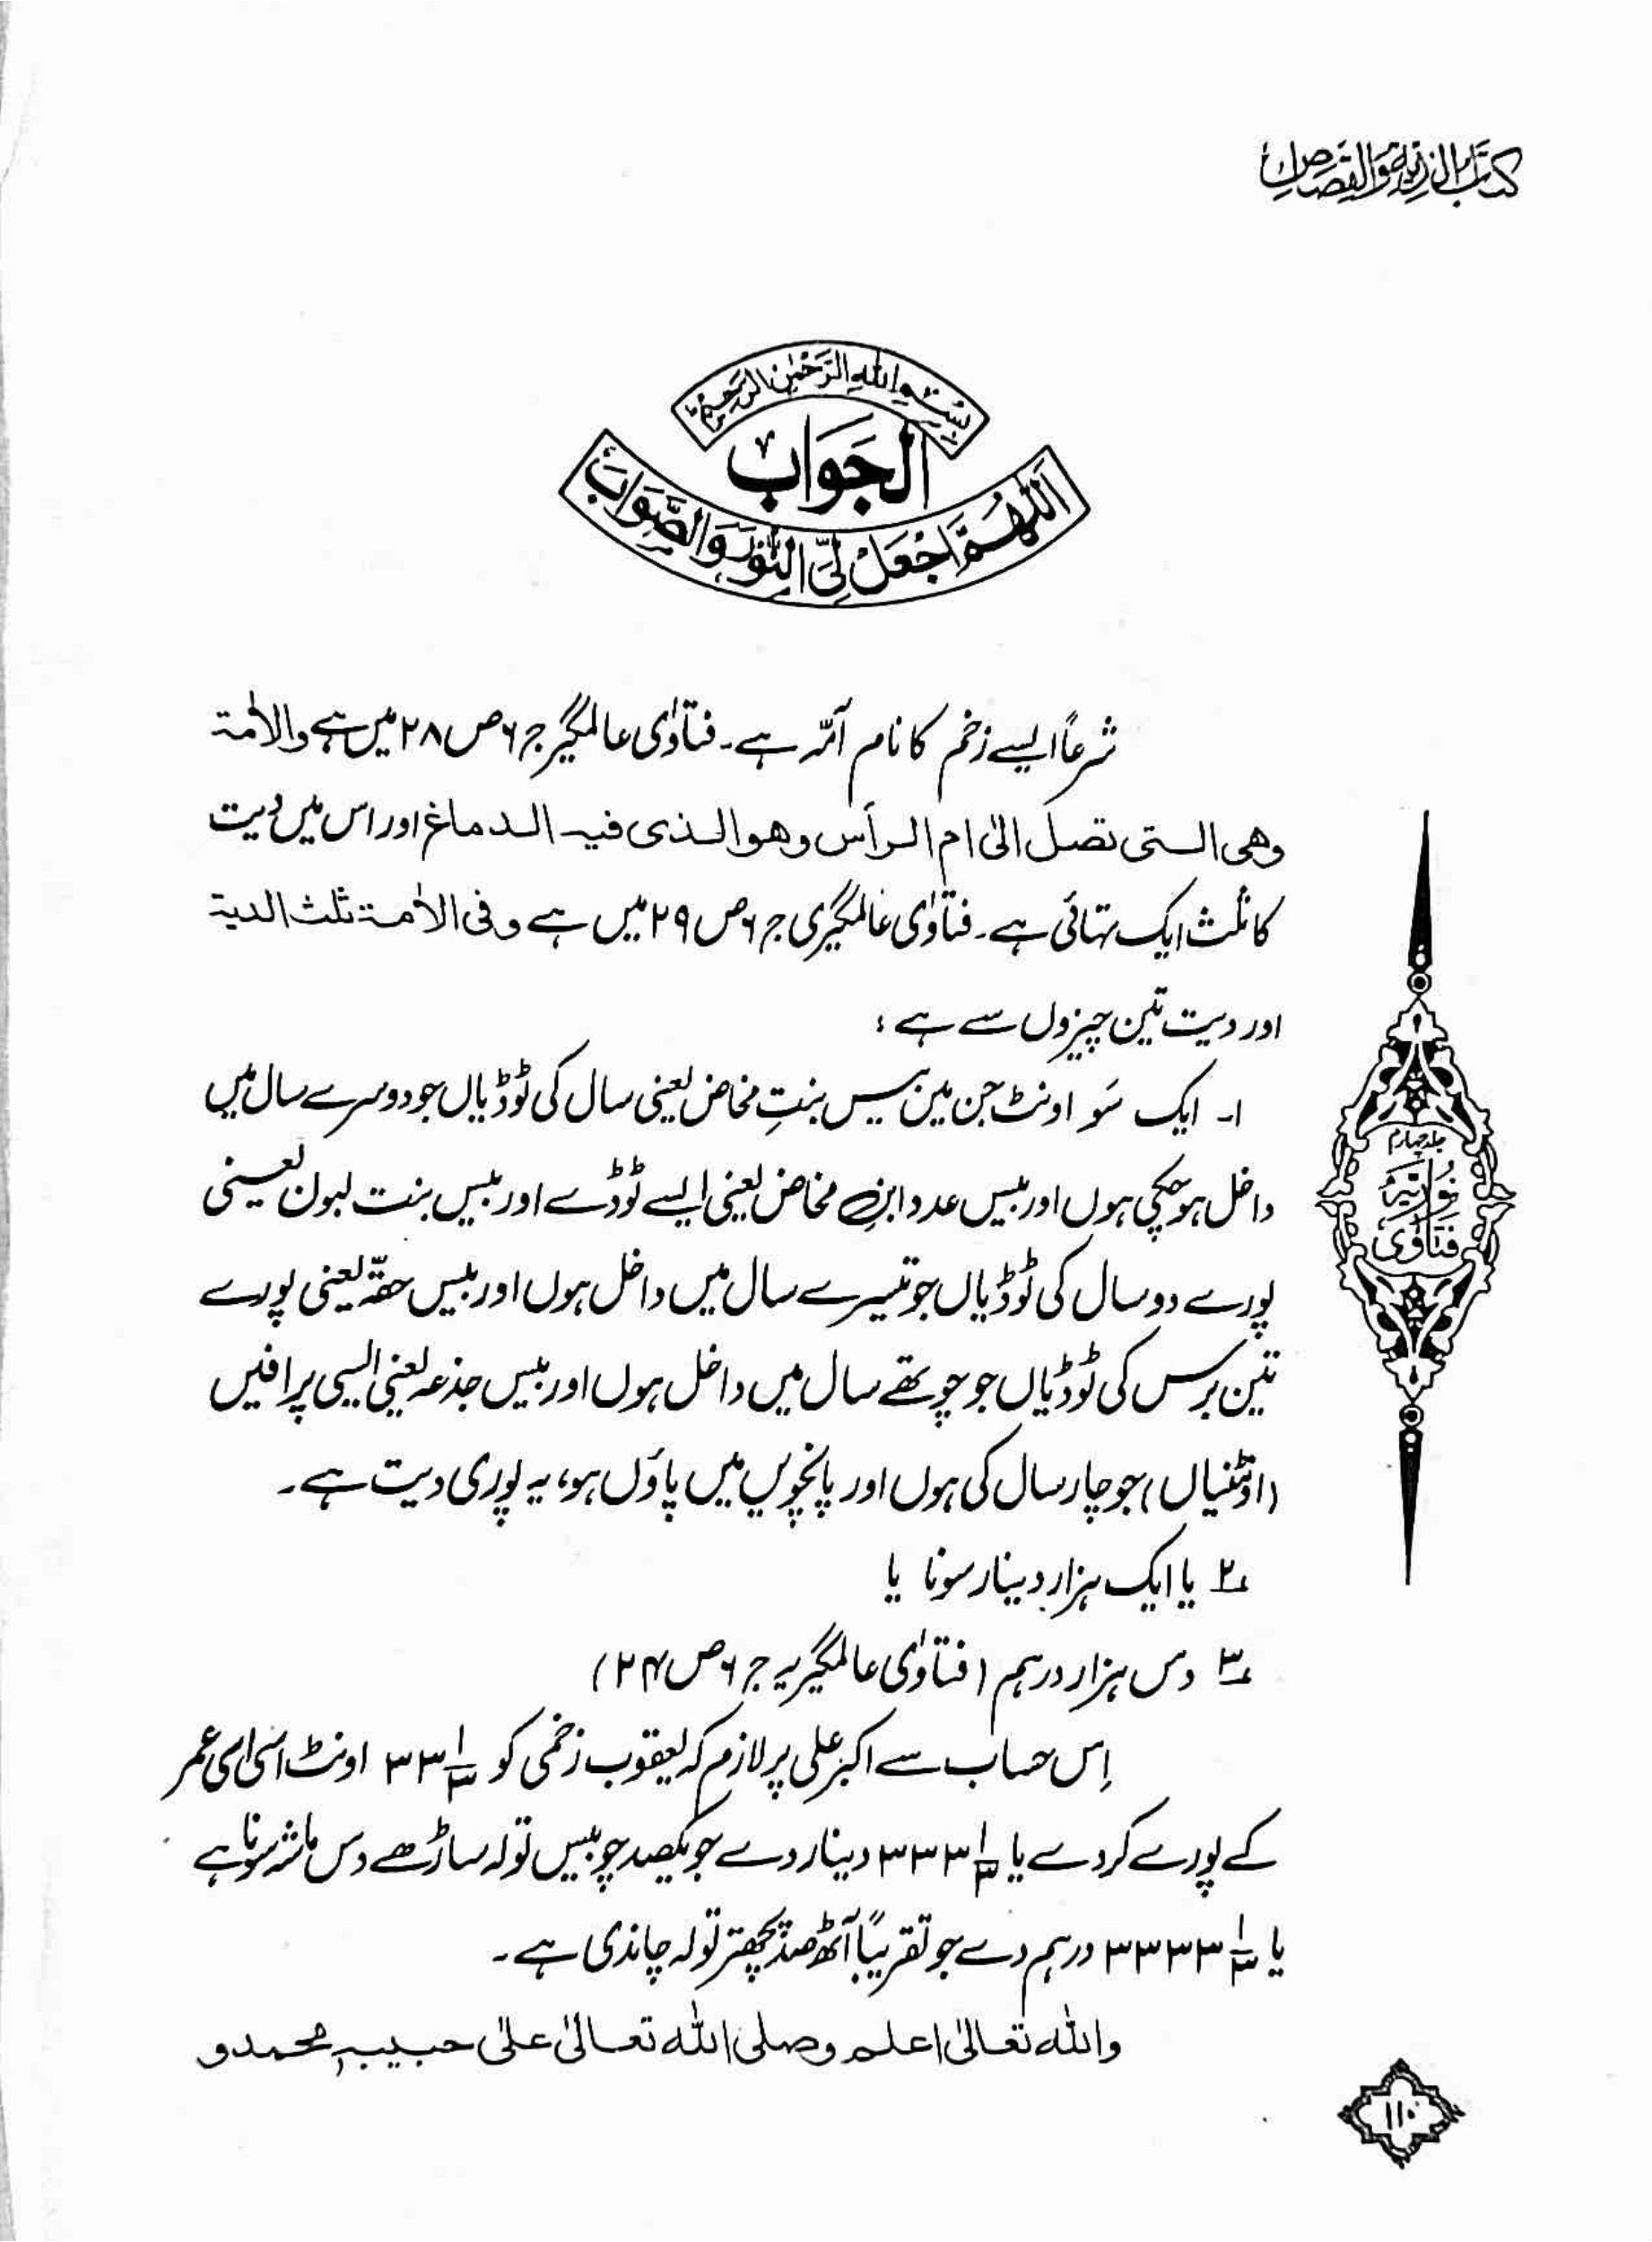 کتاب الدیة والقصاص
بسم الله الرحمن الرحیم
الجواب
اللهم اجعل لی النور والصواب
شرعاً ایسے زخم کا نام آمّہ ہے۔ فتاوٰی عالمگیر ج ۶ ص ۲۸ میں ہے والاٰمة
وھی التی تصل الیٰ ام الرأس وھو الذی فیہ الدماغ اور اس میں دیت
کا ثلث ایک تہائی ہے۔ فتاوٰی عالمگیری ج ۶ ص ۲۹ میں ہے وفی الاٰمة ثلث الدیة
اور دیت تین چیزوں سے ہے :
۱۔ ایک سَو اونٹ جن میں بیس بنتِ مخاض یعنی سال کی ٹوڈیاں جو دوسرے سال میں
داخل ہو چکی ہوں اور بیس عدد ابنِ مخاض یعنی ایسے ٹوڈے اور بیس بنت لبون یعنی
پورے دو سال کی ٹوڈیاں جو تیسرے سال میں داخل ہوں اور بیس حقّہ یعنی پورے
تین برس کی ٹوڈیاں جو چوتھے سال میں داخل ہوں اور بیس جذعہ یعنی ایسی پرافیں
(اونٹنیاں) جو چار سال کی ہوں اور پانچویں میں پاؤں ہو، یہ پوری دیت ہے۔
۲ یا ایک ہزار دینار سونا یا
۳ دس ہزار درہم (فتاوٰی عالمگیریہ ج ۶ ص ۲۴)
اِس حساب سے اکبر علی پر لازم کہ یعقوب زخمی کو ۳۳ ۱/۳ اونٹ اسی ای عمر
کے پورے کر دے یا ۳۳۳ ۱/۳ دینار دے جو یکصد چوبیس تولہ ساڑھے دس ماشہ سونا ہے
یا ۳۳۳۳ ۱/۳ درہم دے جو تقریباً آٹھ صد پچھتر تولہ چاندی ہے۔
والله تعالیٰ اعلم وصلی الله تعالیٰ علیٰ حبیبہٖ محمد و
جلد چہارم
نوریہ
فتاوٰی
۱۱۰